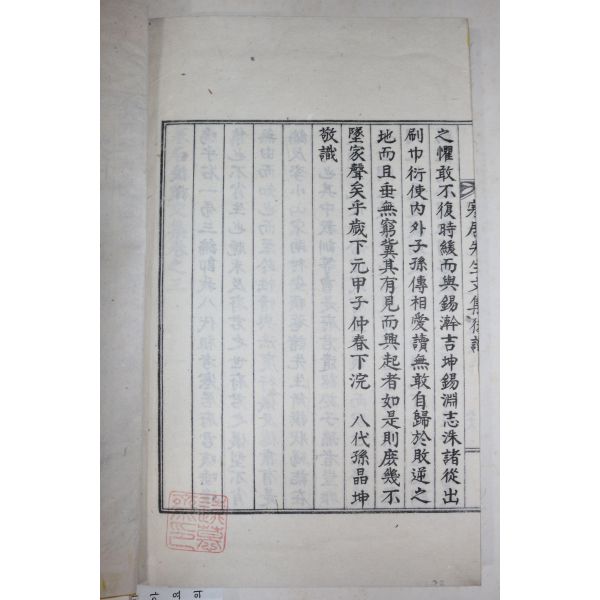 之懼敢不復時緩而與錫瀚吉坤錫淵志洙諸從出
刷巾衍使內外子孫傳相愛讀無敢自歸於敗逆之
地而且垂無窮冀其有見而興起者如是則庶幾不
墜家聲矣乎歲下元甲子仲春下浣 八代孫晶坤
敬識